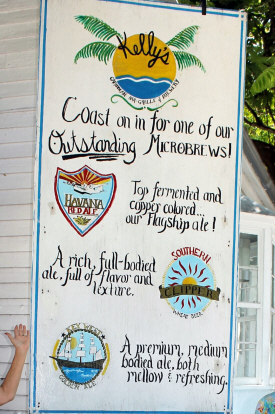 Kelly's
CARIBBEAN BAR-GRILL & BREWERY
Coast on in for one of our
Outstanding MICROBREWS!
HAVANA
RED ALE
Top fermented and
copper colored...
our Flagship ale!
SOUTHERN
CLIPPER
WHEAT BEER
A rich, full-bodied
ale, full of flavor and
texture.
KEY WEST
GOLDEN ALE
A premium, medium
bodied ale, both
mellow & refreshing.